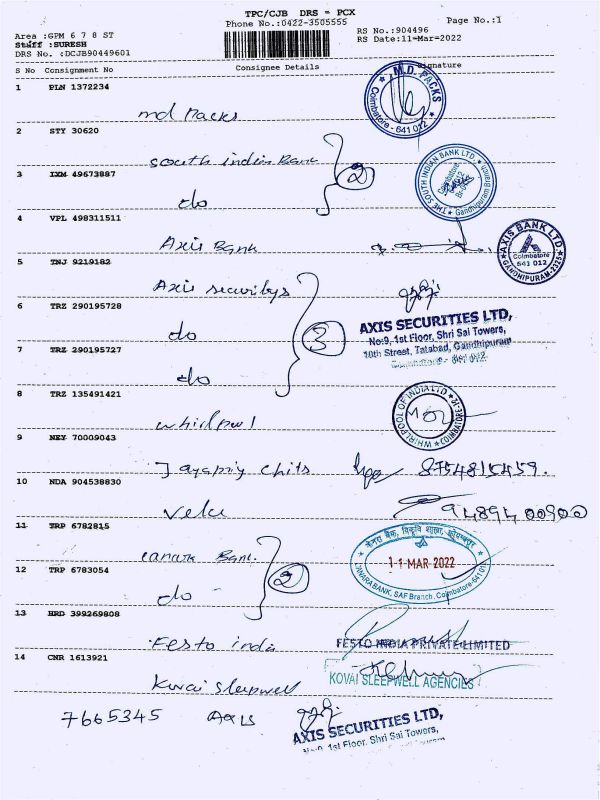 TPC/CJB DRS - PCX
Phone No.:0422-3505555
Page No.:1
Area :GPM 6 7 8 ST
Staff :SURESH
DRS No. :DCJB90449601
RS No.:904496
RS Date:11-Mar-2022
S No Consignment No Consignee Details Signature
1 PLN 1372234
md Packs
M.D. PACKS
Coimbatore - 641 012
2 STY 30620
South indian Bank
2
3 IXM 49673887
do
THE SOUTH INDIAN BANK LTD.
Gandhipuram Branch
4 VPL 498311511
Axis Bank
AXIS BANK LTD.
Coimbatore
641 012
5 TNJ 9219182
Axis securitys
3
6 TRZ 290195728
do
AXIS SECURITIES LTD,
No:9, 1st Floor, Shri Sai Towers,
10th Street, Tatabad, Gandhipuram
Coimbatore - 641 012.
7 TRZ 290195727
do
8 TRZ 135491421
whirlpool
WHIRLPOOL OF INDIA LTD
9 NEY 70009043
Jayapriy chits 8754815459.
10 NDA 904538830
velu 94894 00900
11 TRP 6782815
canara Bank.
2
केनरा बैंक,
11 MAR 2022
CANARA BANK, SAF Branch, Coimbatore-641012
12 TRP 6783054
do
13 HRD 399269808
Festo india
FESTO INDIA PRIVATE LIMITED
14 CNR 1613921
Kovai Sleepwell
KOVAI SLEEPWELL AGENCIES
7665345 Axis
AXIS SECURITIES LTD,
No:9, 1st Floor, Shri Sai Towers,